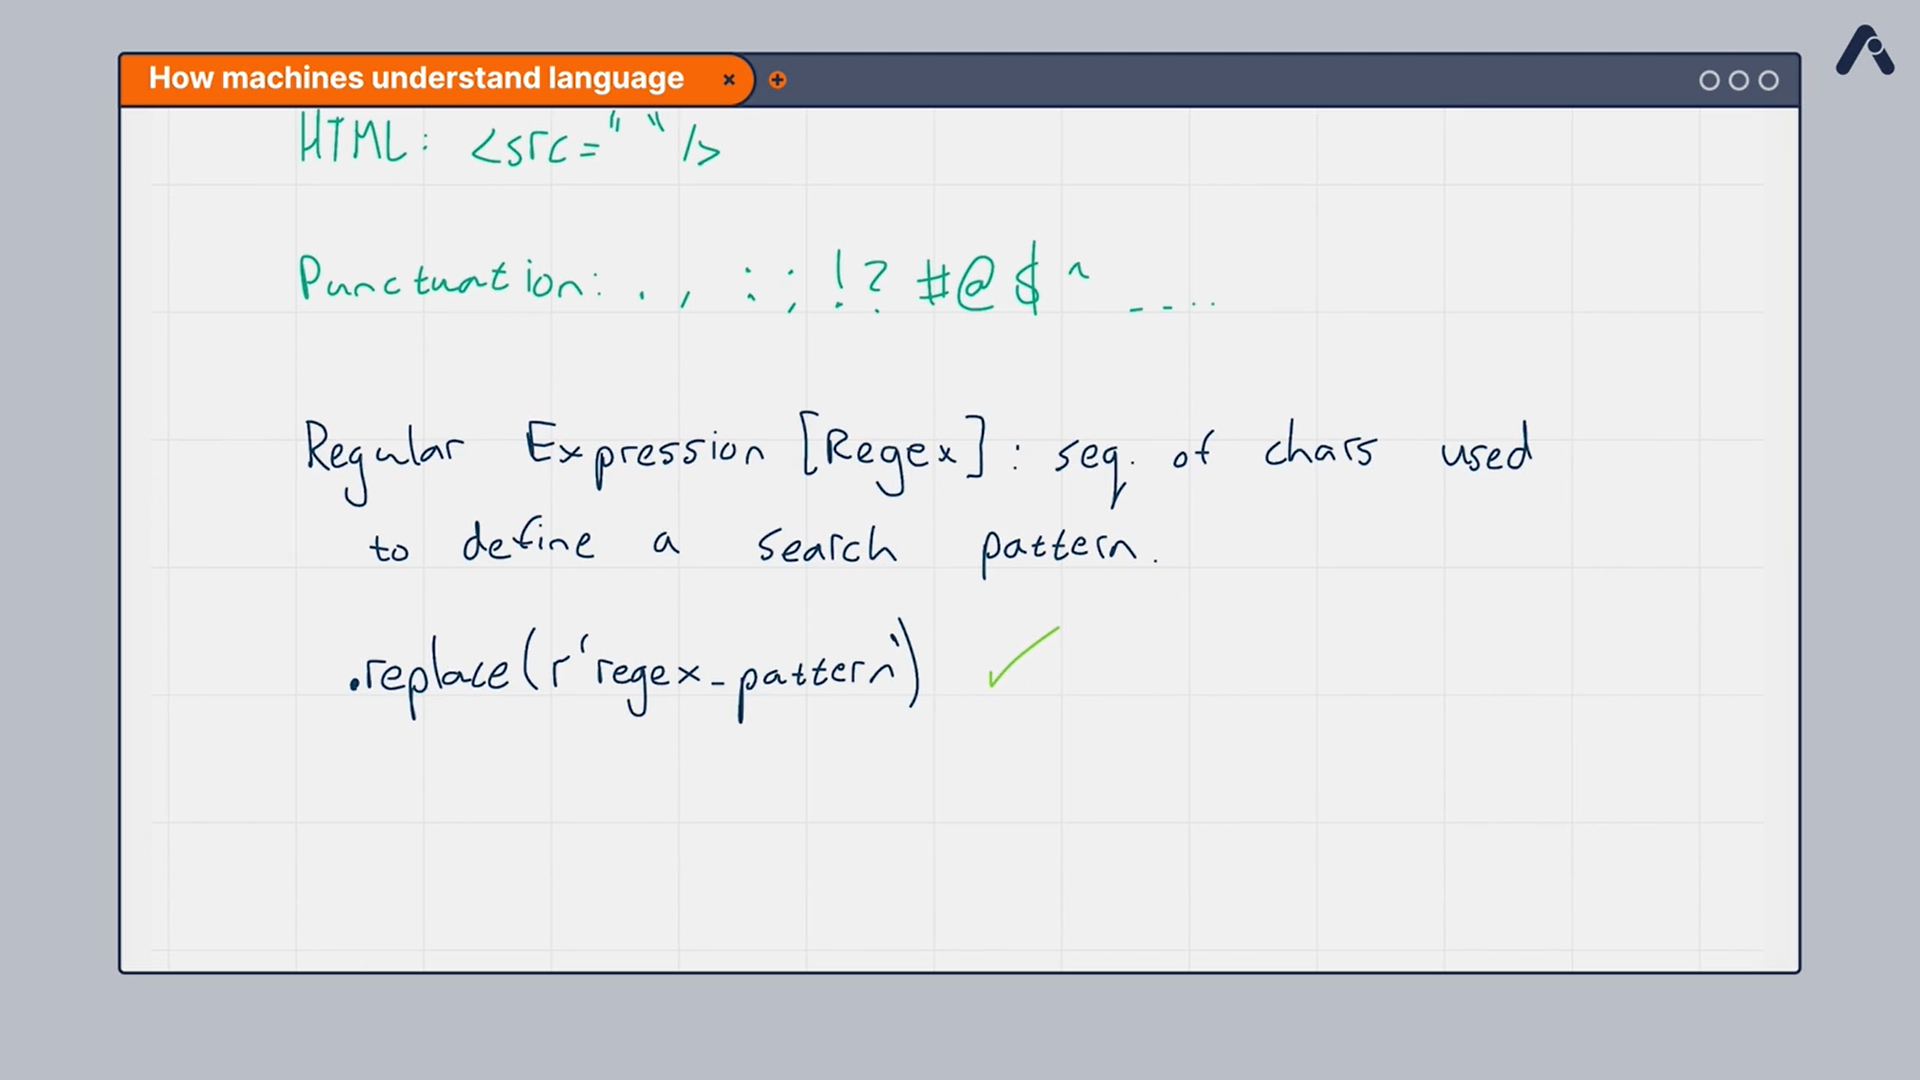 How machines understand language
HTML: <src=" "/>
Punctuation: . , : ; ! ? # @ $ ^ _ - . .
Regular Expression [Regex] : seq. of chars used
to define a search pattern.
.replace(r'regex_pattern')